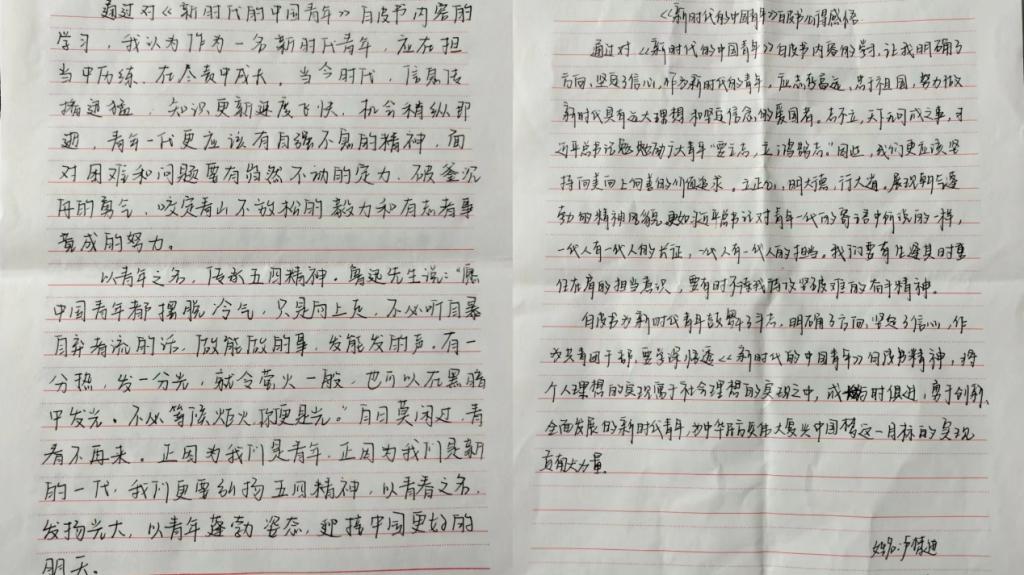 通过对《新时代的中国青年》白皮书内容的
学习，我认为作为一名新时代青年，应在担
当中历练，在尽责中成长。当今时代，信息传
播迅猛，知识更新速度飞快，机会稍纵即
逝，青年一代更应该有自强不息的精神，面
对困难和问题要有岿然不动的定力，破釜沉
舟的勇气，咬定青山不放松的毅力和有志者事
竟成的努力。
以青年之名，传承五四精神。鲁迅先生说：“愿
中国青年都摆脱冷气，只是向上走，不必听自暴
自弃者流的话，做能做的事，发能发的声，有一
分热，发一分光，就令萤火一般，也可以在黑暗
中发光。不必等候炬火，你便是光。”白日莫闲过，青
春不再来。正因为我们是青年，正因为我们是新
的一代，我们更要弘扬五四精神，以青春之名，
发扬光大，以青年蓬勃姿态，迎接中国更好的
明天。
《新时代的中国青年》白皮书心得感悟
通过对《新时代的中国青年》白皮书内容的学习，让我明确了
方向，坚定了信心，作为新时代的青年，应志存高远，忠于祖国，努力做
新时代具有远大理想和坚定信念的爱国者。志不立，天下无可成之事，习
近平总书记勉励广大青年“要立志，立鸿鹄志。”因此，我们更应该坚
持向美向上向善的价值追求。立正心，明大德，行大道。展现朝气蓬
勃的精神风貌，更如习近平总书记对青年一代的寄语中所说的一样，
一代人有一代人的长征，一代人有一代人的担当。我们要有生逢其时重
任在肩的担当意识，要有时不待我攻坚破难的奋斗精神。
白皮书为新时代青年鼓舞了斗志，明确了方向，坚定了信心，作
为共青团干部，要学深悟透《新时代的中国青年》白皮书精神，将
个人理想的实现寓于社会理想的实现之中，成为与时俱进，勇于创新，
全面发展的新时代青年，为中华民族伟大复兴中国梦这一目标的实现
贡献力量。
姓名：卢